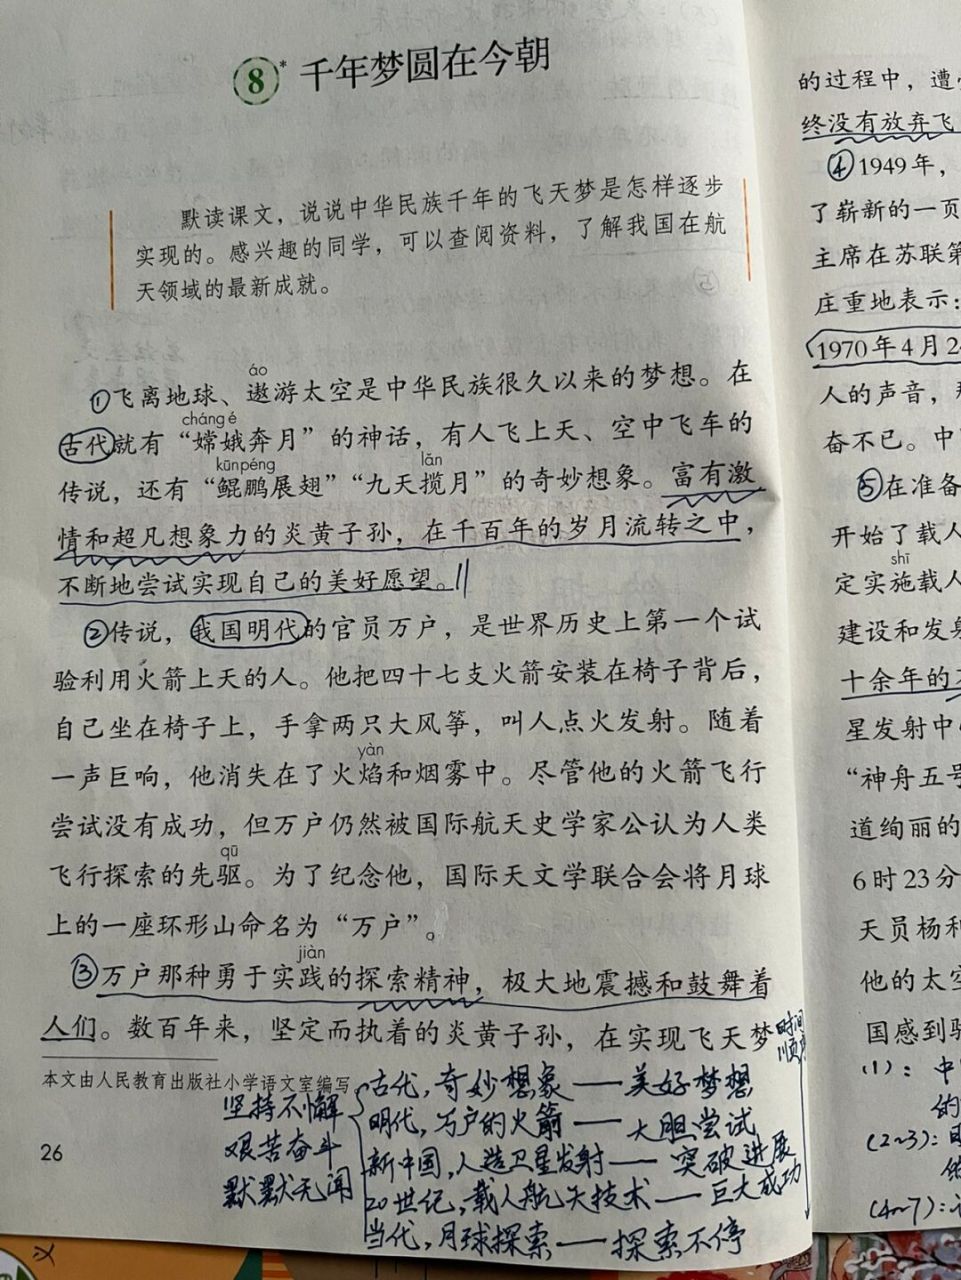 8* 千年梦圆在今朝
默读课文，说说中华民族千年的飞天梦是怎样逐步
实现的。感兴趣的同学，可以查阅资料，了解我国在航
天领域的最新成就。
áo
①飞离地球、遨游太空是中华民族很久以来的梦想。在
cháng é
古代就有“嫦娥奔月”的神话，有人飞上天、空中飞车的
kūnpéng lǎn
传说，还有“鲲鹏展翅”“九天揽月”的奇妙想象。富有激
情和超凡想象力的炎黄子孙，在千百年的岁月流转之中，
不断地尝试实现自己的美好愿望。
②传说，我国明代的官员万户，是世界历史上第一个试
验利用火箭上天的人。他把四十七支火箭安装在椅子背后，
自己坐在椅子上，手拿两只大风筝，叫人点火发射。随着
yàn
一声巨响，他消失在了火焰和烟雾中。尽管他的火箭飞行
尝试没有成功，但万户仍然被国际航天史学家公认为人类
qū
飞行探索的先驱。为了纪念他，国际天文学联合会将月球
上的一座环形山命名为“万户”。
jiàn
③万户那种勇于实践的探索精神，极大地震撼和鼓舞着
人们。数百年来，坚定而执着的炎黄子孙，在实现飞天梦
本文由人民教育出版社小学语文室编写
时间
顺序
坚持不懈
艰苦奋斗
默默无闻
古代，奇妙想象——美好梦想
明代，万户的火箭——大胆尝试
新中国，人造卫星发射——突破进展
20世纪，载人航天技术——巨大成功
当代，月球探索——探索不停
26
的过程中，遭
终没有放弃飞
④1949年，
了崭新的一页
主席在苏联第
庄重地表示：
1970年4月2
人的声音，
奋不已。中
⑤在准备
开始了载人
shī
定实施载人
建设和发射
十余年的
星发射中
“神舟五号
道绚丽的
6时23分
天员杨利
他的太空
国感到
(1)：中
的
(2~3)：
的
(4~7)：